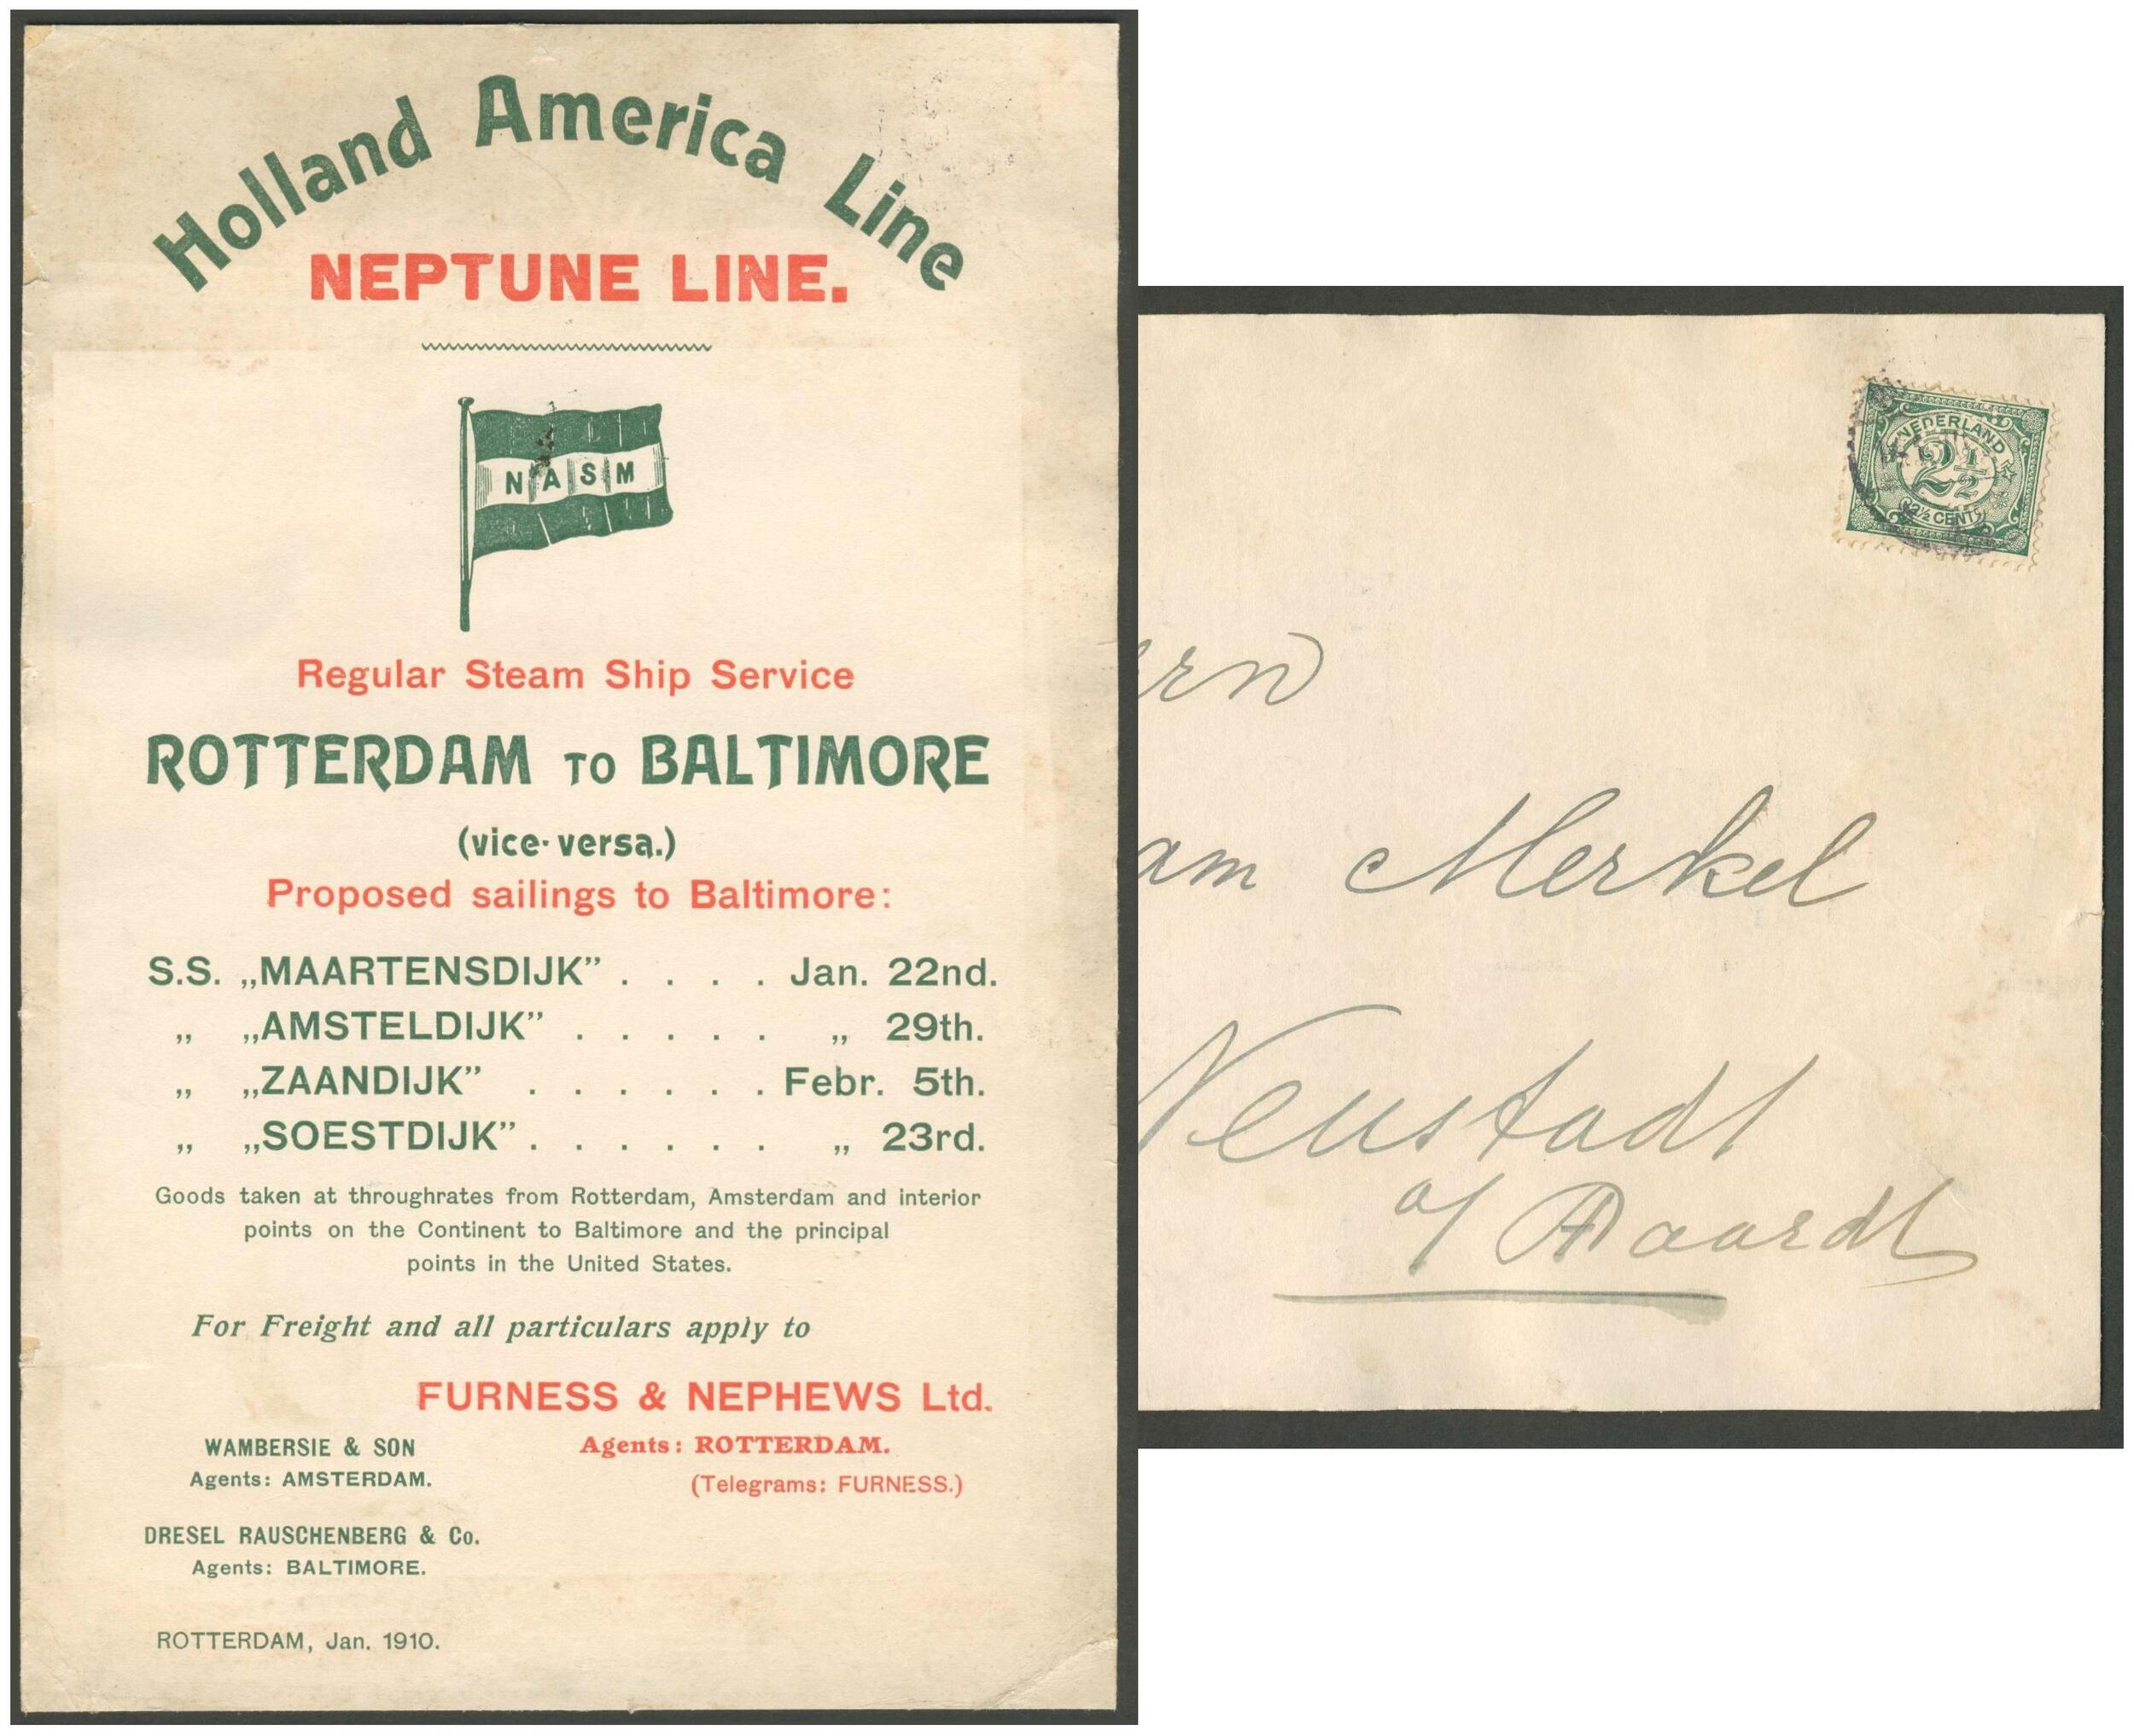 Holland America Line
NEPTUNE LINE.
N A S M
Regular Steam Ship Service
ROTTERDAM TO BALTIMORE
(vice-versa.)
Proposed sailings to Baltimore:
S.S. „MAARTENSDIJK” . . . . Jan. 22nd.
„ „AMSTELDIJK” . . . . . „ 29th.
„ „ZAANDIJK” . . . . . . Febr. 5th.
„ „SOESTDIJK” . . . . . . „ 23rd.
Goods taken at throughrates from Rotterdam, Amsterdam and interior
points on the Continent to Baltimore and the principal
points in the United States.
For Freight and all particulars apply to
FURNESS & NEPHEWS Ltd.
Agents: ROTTERDAM.
(Telegrams: FURNESS.)
WAMBERSIE & SON
Agents: AMSTERDAM.
DRESEL RAUSCHENBERG & Co.
Agents: BALTIMORE.
ROTTERDAM, Jan. 1910.
NEDERLAND
2½
2½ CENT
rn
am Merkel
Neustadt
a/Haardt